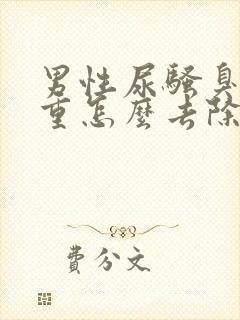 男性尿騷臭
重怎麼去除
費分文